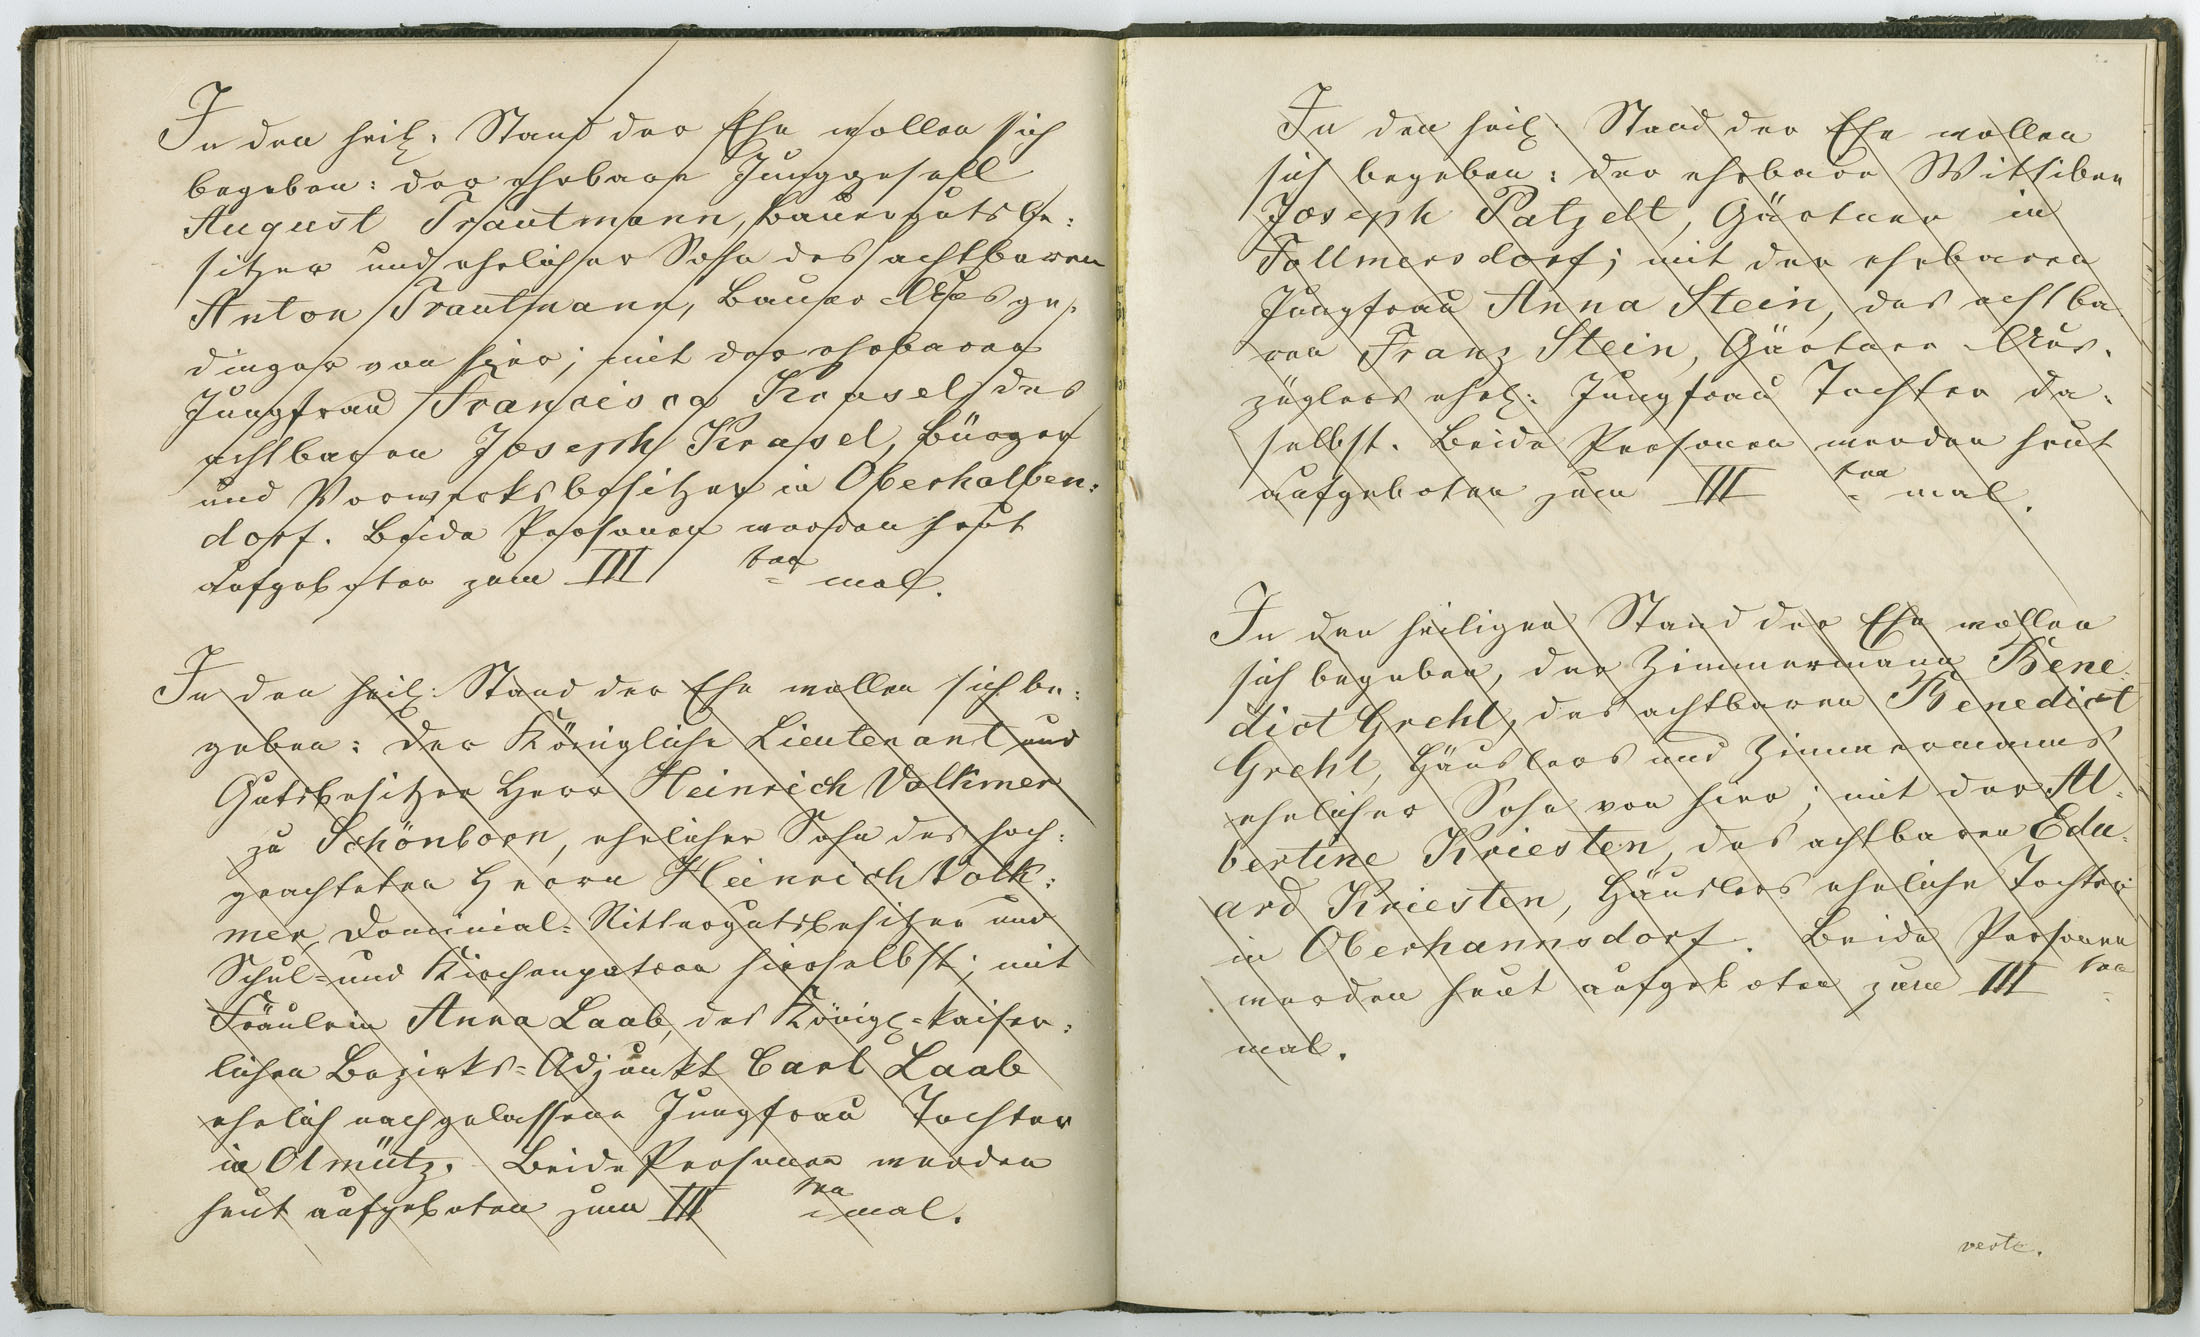 In den heil: Stand der Ehe wollen sich
begeben: der ehrbare Junggesell
August Trautmann, Bauergutsbe:
sitzer und ehelicher Sohn des achtbaren
Anton Trautmann, Bauer-Ausge:
dinger von hier; mit der ehrbaren
Jungfrau Francisca Krasel des
achtbaren Joseph Krasel, Bürger
und Vorwerksbesitzer in Oberhalben:
dorf. Beide Personen werden heut
aufgeboten zum III ten mal.
In den heil: Stand der Ehe wollen sich be:
geben: der Königliche Lieutenant und
Gutsbesitzer Herr Heinrich Volkmer
zu Schönborn, ehelicher Sohn des hoch:
geachteten Herrn Heinrich Volk:
mer, Dominial-Rittergutsbesitzer und
Schul- und Kirchenpatron hierselbst; mit
Fräulein Anna Laab, des Königl-kaiser:
lichen Bezirks-Adjunkt Carl Laab
ehelich nachgelassene Jungfrau Tochter
in Olmütz. Beide Personen werden
heut aufgeboten zum III ten mal.
In den heil. Stand der Ehe wollen
sich begeben: der ehrbare Wittiber
Joseph Patzelt, Gärtner in
Follmersdorf; mit der ehrbaren
Jungfrau Anna Stein, des achtba
ren Franz Stein, Gärtner-Aus-
züglers ehel: Jungfrau Tochter da:
selbst. Beide Personen werden heut
aufgeboten zum III ten mal.
In den heiligen Stand der Ehe wollen
sich begeben, der Zimmermann Bene
dict Grehl, des achtbaren Benedict
Grehl, Häuslers und Zimmermanns
ehelicher Sohn von hier; mit der Al-
bertine Kriesten, des achtbaren Edu-
ard Kriesten, Häuslers eheliche Tochter
in Oberhannsdorf. Beide Personen
werden heut aufgeboten zum III ten
mal.
verte.